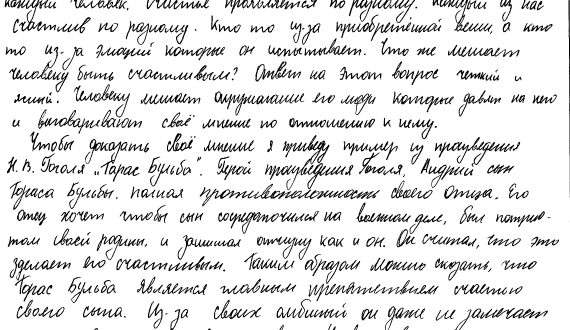 каждый человек. Счастье проявляется по разному. Каждый из нас
счастлив по разному. Кто то из-за приобретённой вещи, а кто
то из-за эмоций которые он испытывает. Что же мешает
человеку быть счастливым? Ответ на этот вопрос четкий и
ясный. Человеку мешает окружающие его люди которые давят на него
и выговаривают своё мнение по отношению к нему.
Чтобы доказать своё мнение я приведу пример из произведения
Н.В. Гоголя „Тарас Бульба". Герой произведения Гоголя, Андрий сын
Тараса Бульбы. полная противоположность своего отца. Его
отец хочет чтобы сын сосредоточился на военном деле, был патрио-
том своей родины, и защищал отчизну как и он. Он считал, что это
зделает его счастливым. Таким образом можно сказать, что
Тарас Бульба является главным препятствием счастью
своего сына. Из-за своих амбиций он даже не замечает